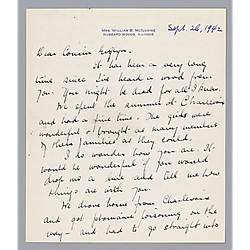 MRS. WILLIAM B. McILVAINE
HUBBARD WOODS, ILLINOIS
Sept. 26, 1942
Dear Cousin
It has been a very long
time since I've heard a word from
you. You might be dead for all I hear.
We spent the summer at Charlevoix
and had a fine time. The girls were
wonderful & brought as many members
of their families as they could.
I do wonder how you are. It
would be wonderful if you would
drop me a line and tell me how
things are with you.
We drove home from Charlevoix
and got ptomaine poisoning on the
way - and had to go straight into